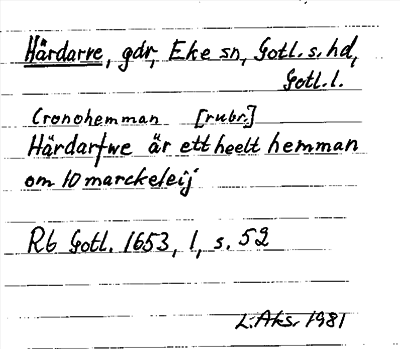 Härdarve, gdr, Eke sn, Gotl. s. hd,
Gotl. l.
Cronohemman [rubr.]
Härdarfwe är ett heelt hemman
om 10 marckeleij
Rb Gotl. 1653, 1, s. 52
L. Aks. 1981